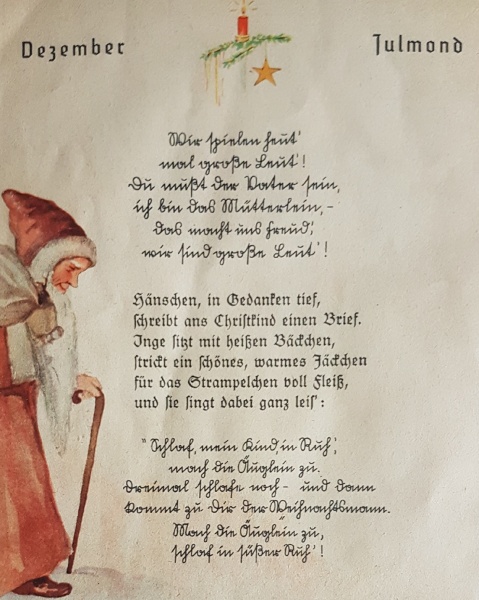 Dezember
Julmond
Wir spielen heut'
mal große Leut'!
Du mußt der Vater sein,
ich bin das Mütterlein, -
das macht uns Freud',
wir sind große Leut'!
Hänschen, in Gedanken tief,
schreibt ans Christkind einen Brief.
Inge sitzt mit heißen Bäckchen,
strickt ein schönes, warmes Jäckchen
für das Strampelchen voll Fleiß,
und sie singt dabei ganz leis':
"Schlaf, mein Kind, in Ruh',
mach die Äuglein zu.
Dreimal schlafe noch - und dann
kommt zu Dir der Weihnachtsmann.
Mach die Äuglein zu,
schlaf in süßer Ruh'!